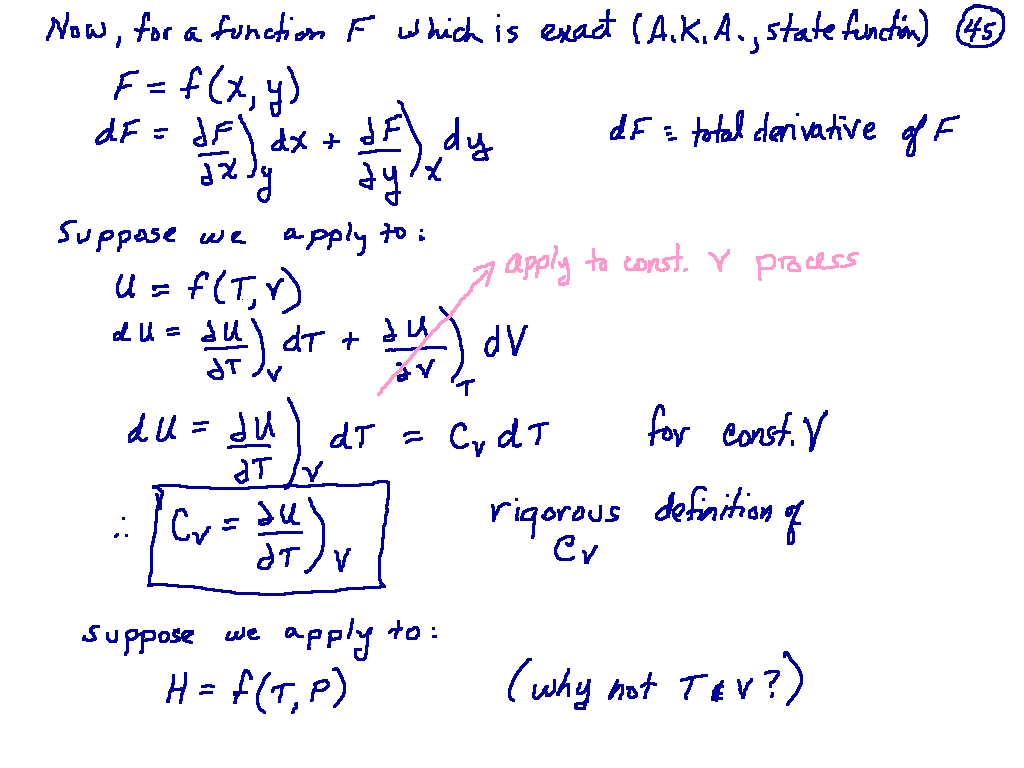 Now, for a function F which is exact (A.K.A., state function) 45
F = f(x, y)
dF = ∂F/∂x)y dx + ∂F/∂y)x dy dF ≡ total derivative of F
Suppose we apply to:
apply to const. V process
U = f(T, V)
dU = ∂U/∂T)V dT + ∂U/∂V)T dV
dU = ∂U/∂T)V dT = Cv dT for const. V
∴ Cv = ∂U/∂T)V rigorous definition of
Cv
suppose we apply to:
H = f(T, P) (why not T & V?)